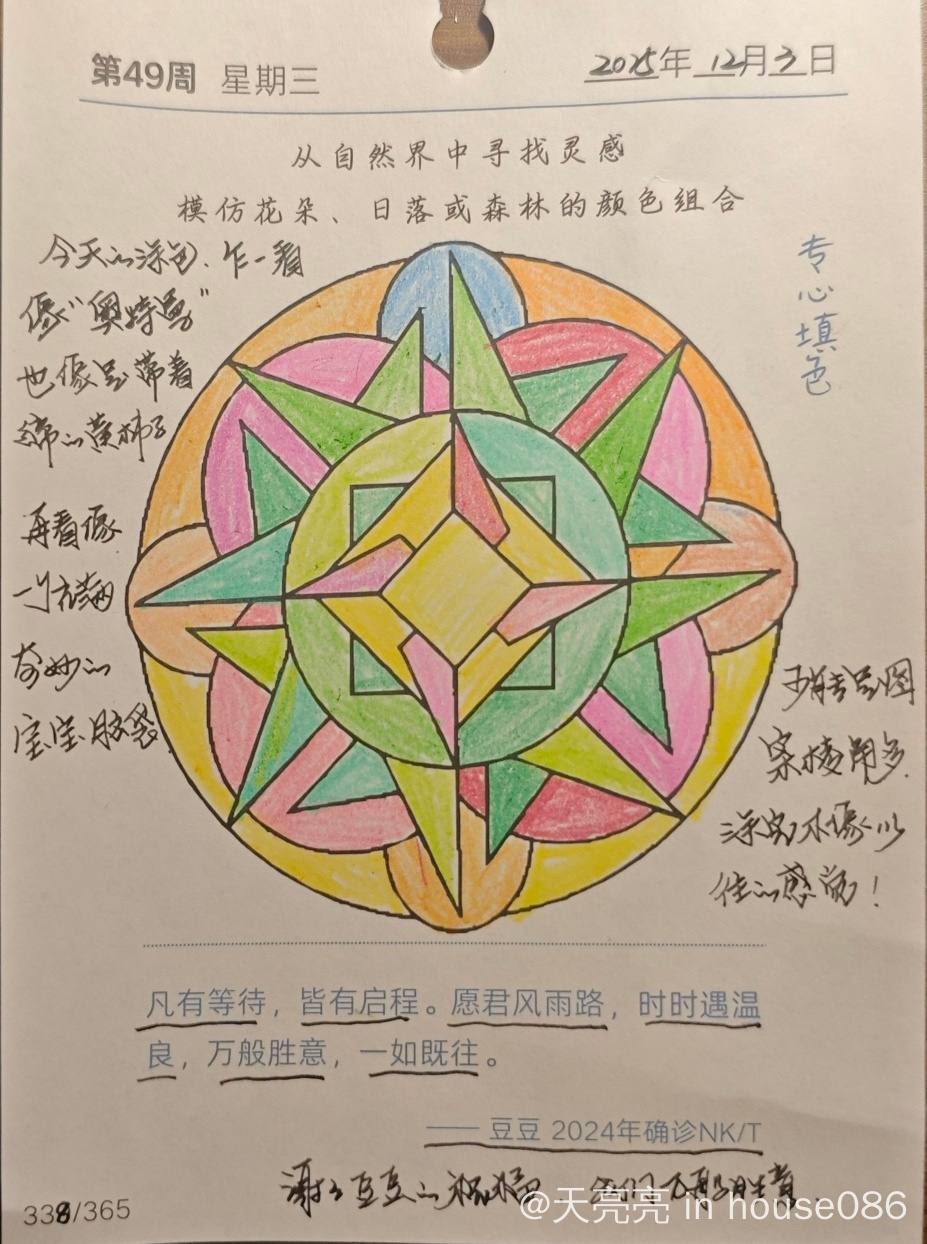 第49周 星期三
2025年 12月3日
从自然界中寻找灵感
模仿花朵、日落或森林的颜色组合
专心填色
今天的涂色、乍一看
像“奥特曼”
也像是带着
蒂的黄柿子
再看像
一个充满
奇妙的
宝宝胶袋
案棱角多
涂完不像以
往的感觉！
凡有等待，皆有启程。愿君风雨路，时时遇温
良，万般胜意，一如既往。
—— 豆豆 2024年确诊NK/T
谢谢豆豆的祝福 我们万般胜意
338/365
@天亮亮 in house086